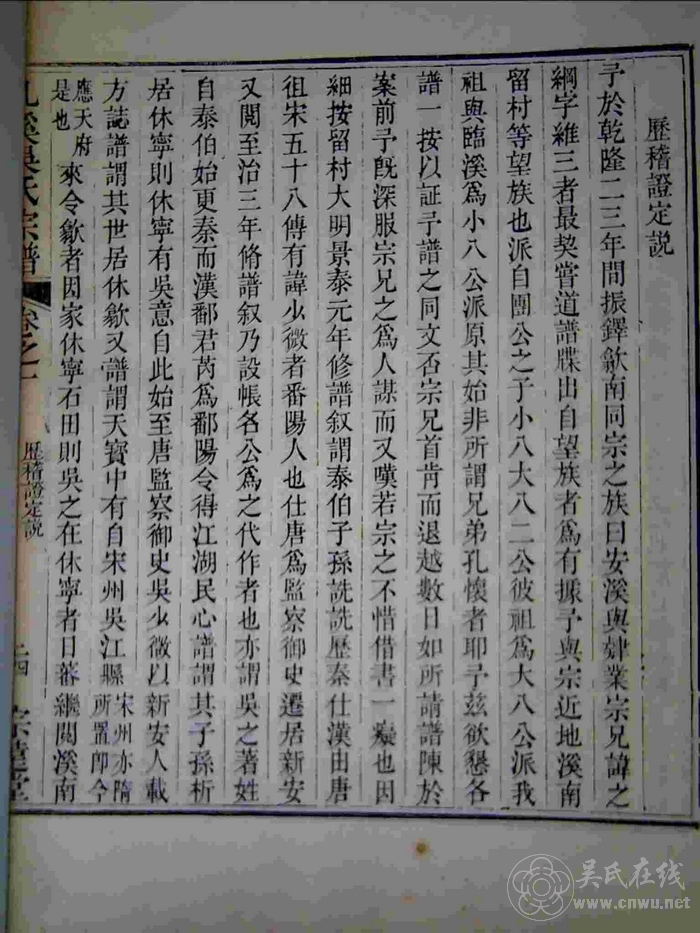 歷稽證定説
予於乾隆二三年間振鐸歙南同宗之族曰安溪與肄業宗兄諱之
綱字維三者最契嘗道譜牒出自望族者爲有據予與宗近地溪南
留村等望族也派自團公之子小八大八二公彼祖爲大八公派我
祖與臨溪爲小八公派原其始非所謂兄弟孔懷者耶予兹欲懇各
譜一按以証予譜之同文否宗兄首肯而退越數日如所請譜陳於
案前予旣深服宗兄之爲人謀而又嘆若宗之不惜借書一癡也因
細按留村大明景泰元年修譜叙謂泰伯子孫詵詵歷秦仕漢由唐
徂宋五十八傳有諱少微者番陽人也仕唐爲監察御史遷居新安
又閲至治三年脩譜叙乃設帳各公爲之代作者也亦謂吳之著姓
自泰伯始更秦而漢鄱君芮爲鄱陽令得江湖民心譜謂其子孫析
居休寧則休寧有吳意自此始至唐監察御史吳少微以新安人載
方誌譜謂其世居休歙又譜謂天寳中有自宋州吳江縣宋州亦隋所置即今
應天府是也來令歙者因家休寧石田則吳之在休寧者日蕃繼閲溪南
溪吳氏宗譜
卷之一
歷稽證定説
吴氏在线
www.cnwu.net